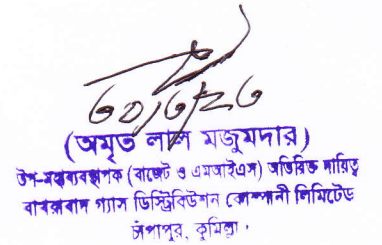 ৩০/৩/২৩
(অমৃত লাল মজুমদার)
উপ-মহাব্যবস্থাপক (বাজেট ও এমআইএস) অতিরিক্ত দায়িত্ব
বাখরাবাদ গ্যাস ডিস্ট্রিবিউশন কোম্পানী লিমিটেড
চাঁপাপুর, কুমিল্লা।